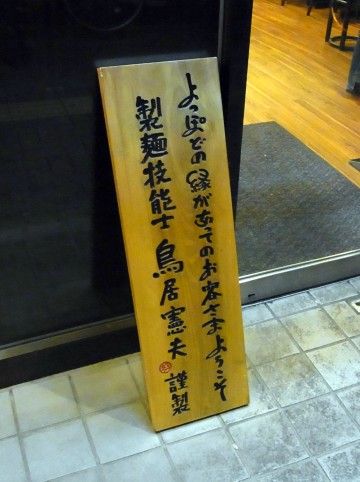 よっぽどの縁があってのお客さまようこそ
製麺技能士 鳥居憲夫 謹製